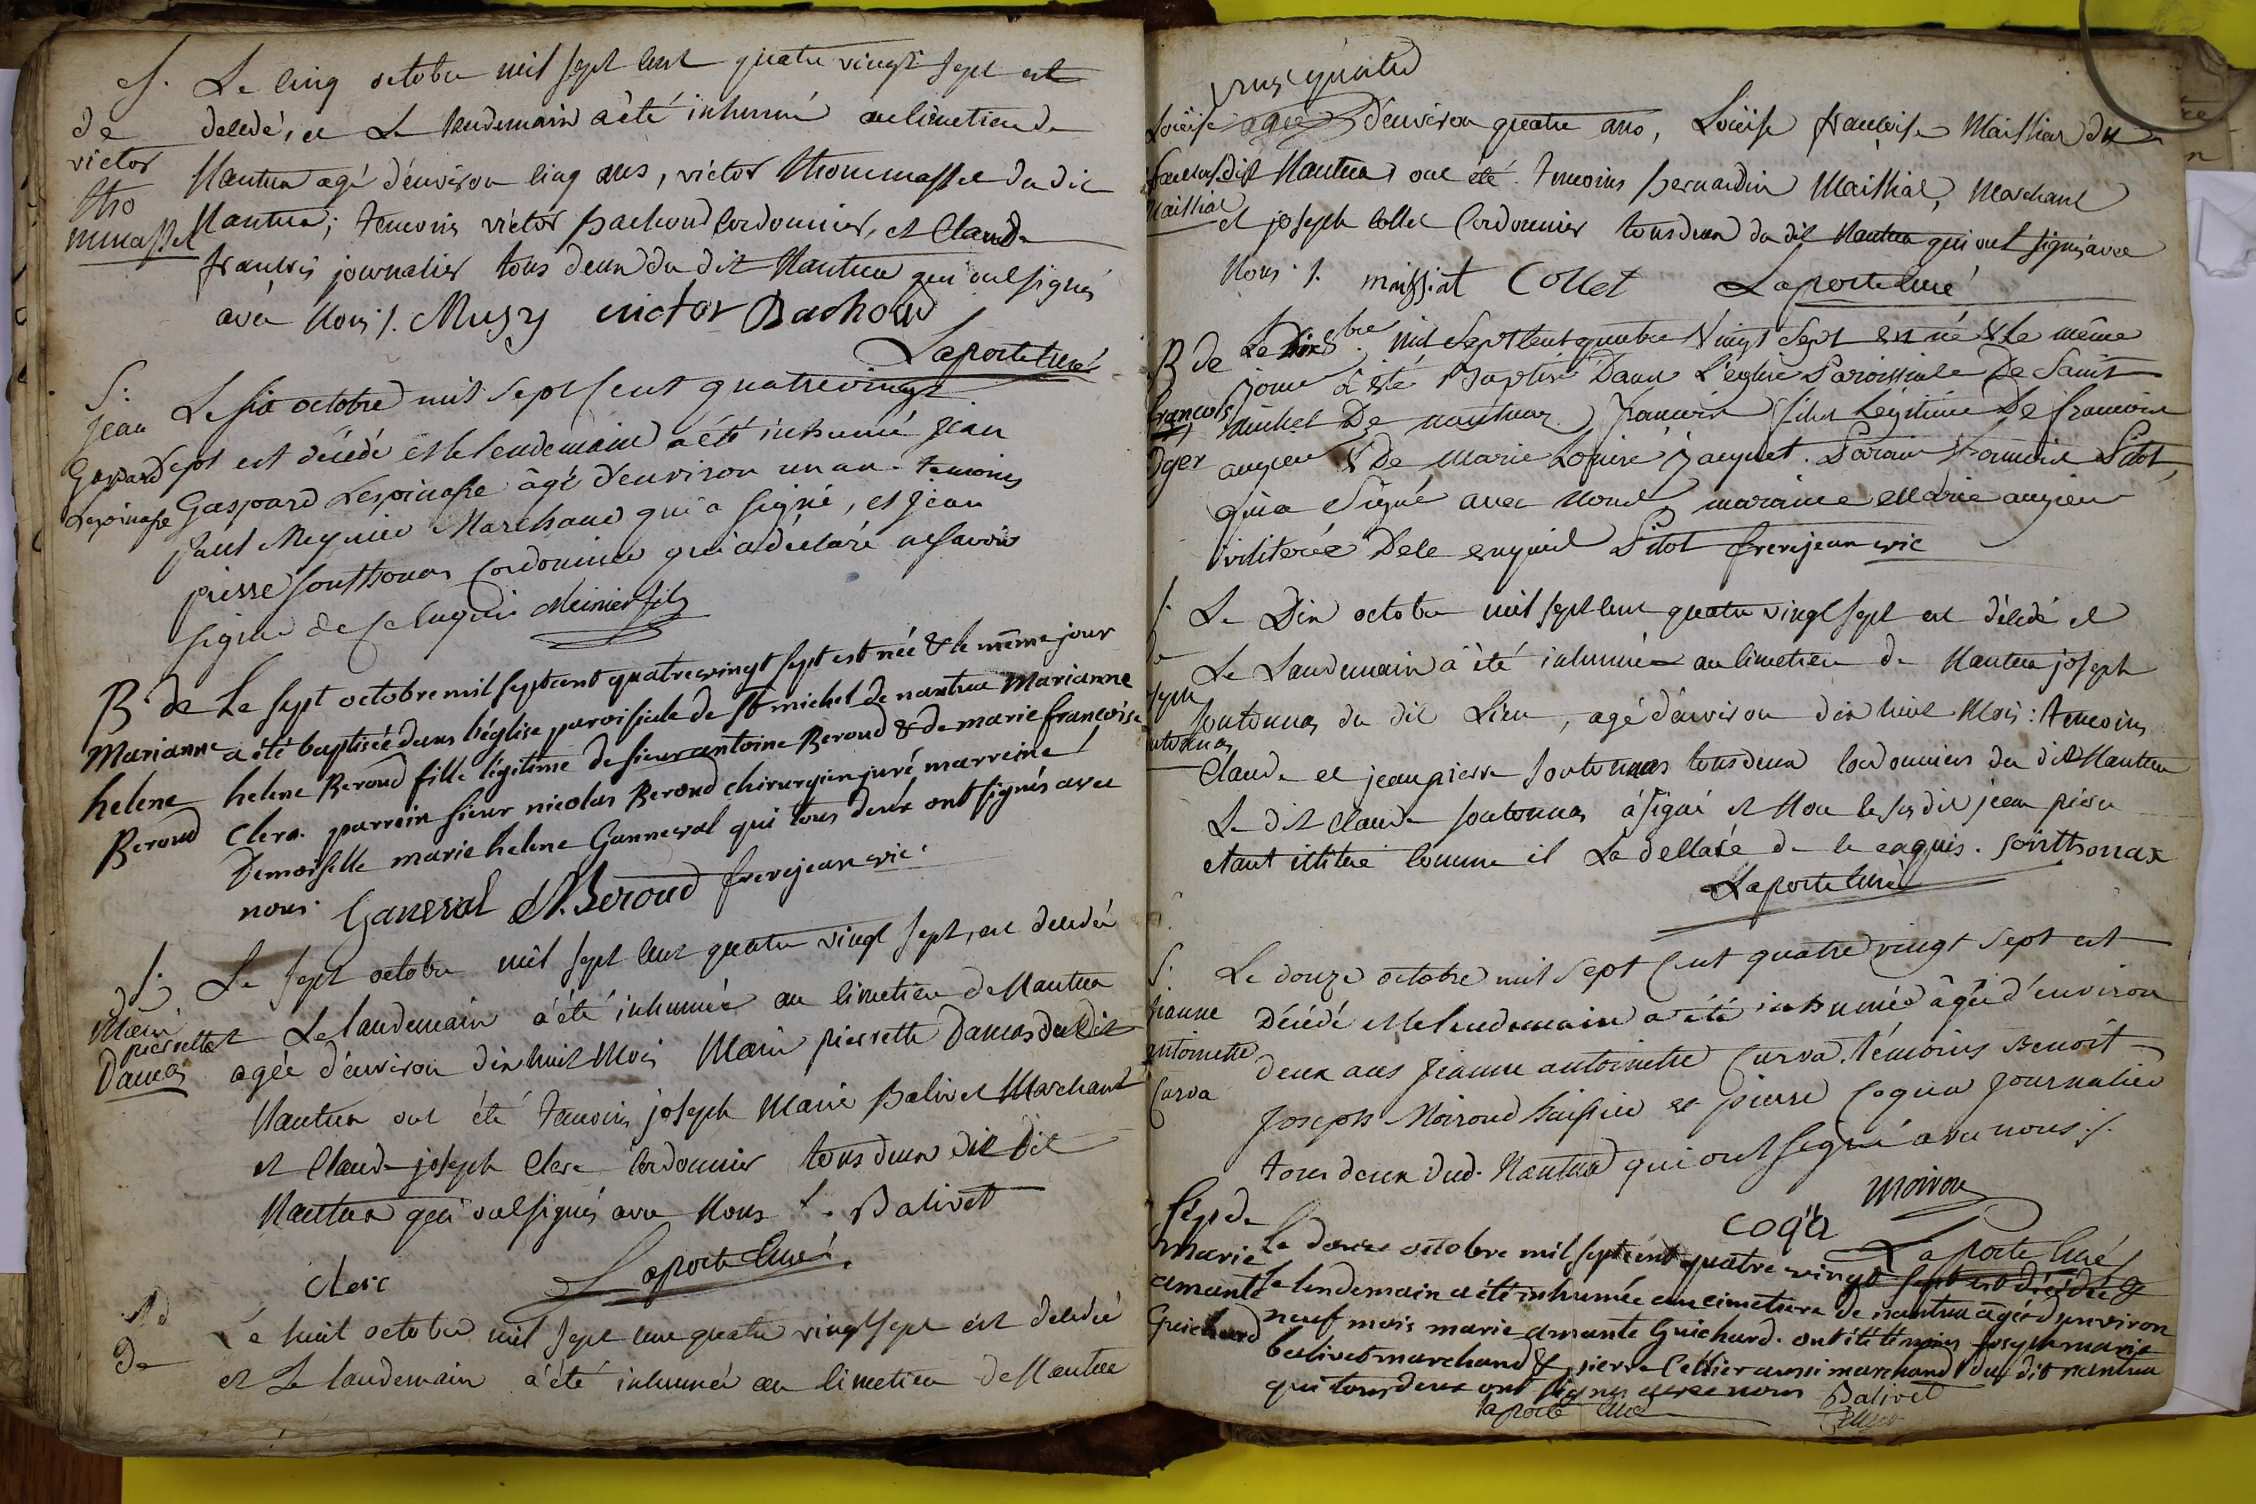 S. Le cinq octobre mil sept cent quatre vingt sept est
de decedé, et Le lendemain a été inhumé au cimetiere de
victor Nantua agé d'environ cinq ans, victor thommasset du dit
tho Nantua; temoins victor bachoud Cordonnier, et Claude
mmasset francois journalier tous deux du dit Nantua qui ont signés
avec Nous ./. Musy victor Bachoud
Laporte Curé
S. Le six octobre mil sept Cent quatrevingt
Jean sept est décédé et le lendemain a été inhumé jean
Gaspard Gaspard Lespinasse âgé d'environ un an. temoins
Lespinasse paul Meynier Marchand qui a signé, et jean
pierre sonthonax Cordonnier qui a déclaré ne savoir
signer de ce enquis Meinier fils
B. de Le sept octobre mil sept cent quatre vingt sept est née & le même jour
Marianne a été baptisée dans l'église paroissiale de St michel de nantua Marianne
helene helene Beroud fille légitime de sieur antoine Beroud & de marie francoise
Beroud Clerc. parrein sieur nicolas Beroud chirurgien juré marreine
Demoiselle marie helene Ganneval qui tous deux ont signés avec
nous. Ganeval N. Beroud frerejean vic.
S. Le sept octobre mil sept cent quatre vingt sept, est decedée
de et Le landemain a été inhumée au cimetiere de Nantua
Marie pierrette agée d'environ dix huit Mois Marie pierrette Damas du dit
Damas Nantua ont été temoins joseph Marie Balivet Marchand
et Claude joseph Clerc Cordonnier tous deux du dit
Nantua qui ont signés avec Nous ./. Balivet
Clerc Laporte Curé
de Le huit octobre mil sept cent quatre vingt sept est decedée
et Le landemain a été inhumée au cimetiere de Nantua
Louise agée d'environ quatre ans, Loüise francoise Maissiat du
francoise dit Nantua ont été temoins bernardin Maissiat, Marchand
Maissiat et joseph Collet Cordonnier tous deux du dit Nantua qui ont signés avec
Nous ./. maissiat Collet Laporte Curé
B de Le Dix 8bre mil Sept Cent quatre Vingt Sept est né & Le même
jour a été Baptisé Dans L'eglise Paroissiale De Saint
francois michel De nantua francois fils Légitime De francois
& De Marie Louise Jacquet. Parain francois Pitot,
qui a Signé avec nous, maraine Marie
illiterée De ce enquis Pitot frerejean vic
S. Le Dix octobre mil sept cent quatre vingt sept est décedé et
de Le Landemain a été inhumé au cimetiere de Nantua joseph
seph sontonax du dit Lieu, agé d'environ dix huit Mois: temoins
ntonax Claude et jean pierre sontonax tous deux cordonniers du dit Nantua
Le dit Claude sontonax a signé et Non le sus dit jean pierre
etant illitere comme il La declaré de ce enquis. sonthonax
Laporte Curé
S. Le douze octobre mil sept Cent quatre vingt sept est
Jeanne décédé et le lendemain a été inhumée âgée d'environ
antoinette deux ans Jeanne antoinette Curva. témoins Benoit
Curva Joseph Moiroud huissier et pierre Coquia journalier
tous deux dud. Nantua qui ont signé avec nous ./.
Moirou
Coq'a
Laporte Curé
Sep. de Le douze octobre mil sept cent quatre vingt sept est décédée &
Marie le lendemain a été inhumée au cimetiere de nantua agée d'environ
amante neuf mois marie amante Guichard. ont été témoins joseph marie
Guichard balivet marchand & pierre Cellier aussi marchand du dit nantua
qui tous deux ont signés avec nous Balivet
Laporte Curé